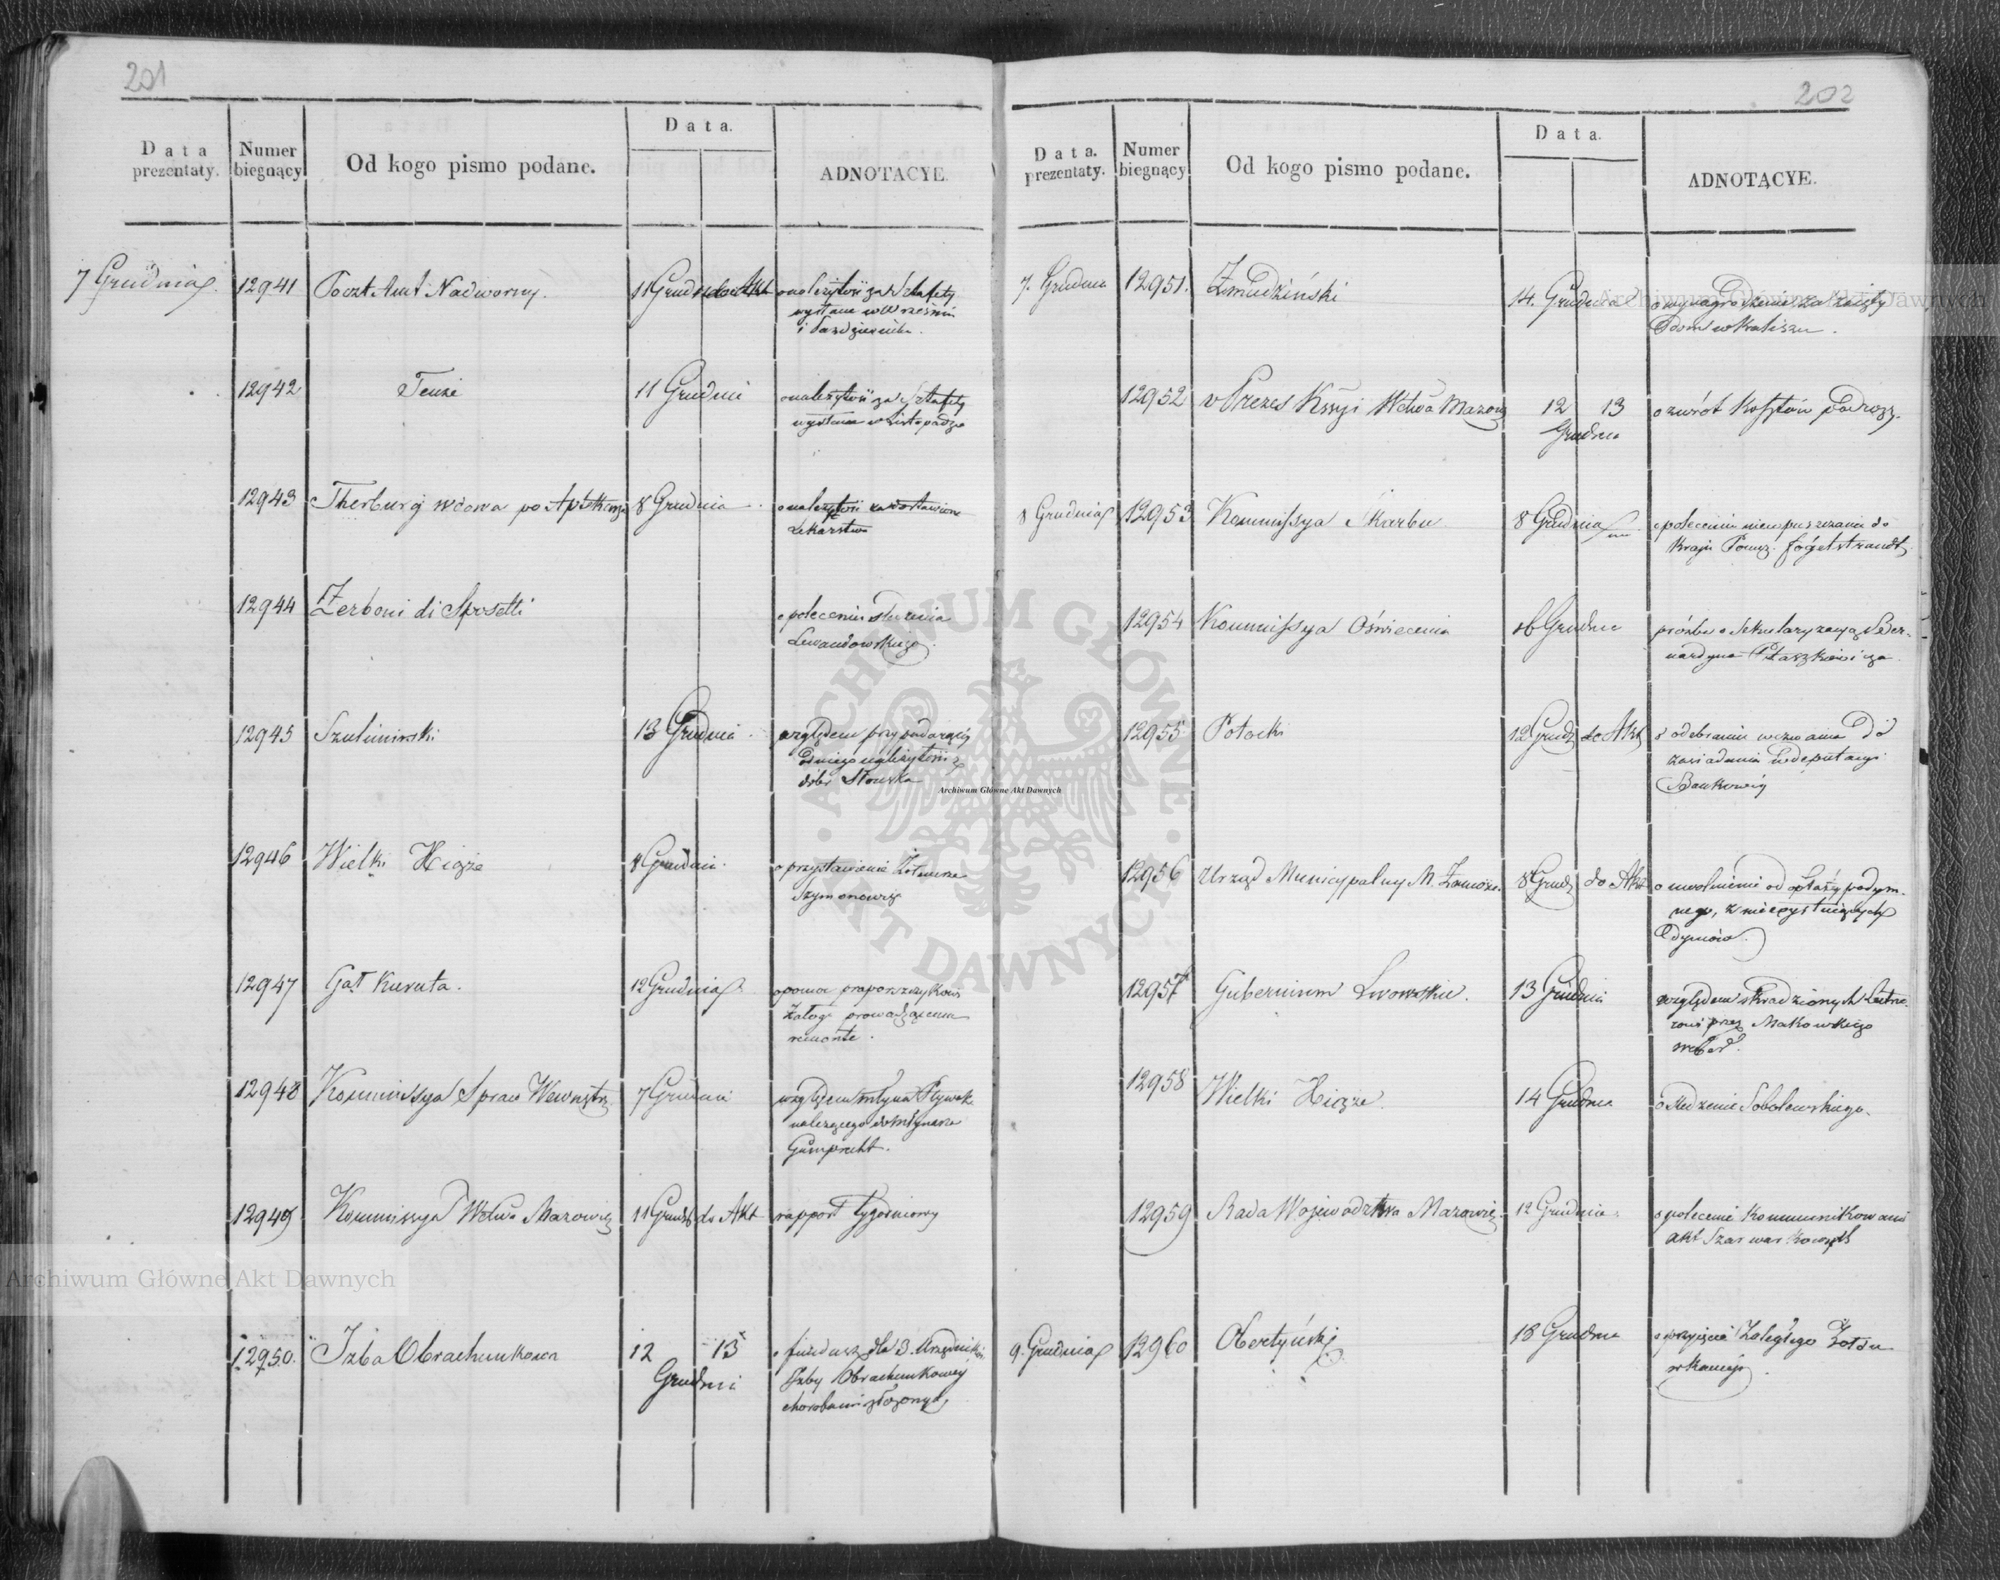 201
Data prezentaty.
Numer biegnący
Od kogo pismo podane.
Data.
ADNOTACYE.
7 Grudnia
12941
Poczt Amt Nadworny.
11 Grud do Akt
o należytość za sztafety
wysłane w Wrześniu
i Październiku.
12942
Tenże
11 Grudni
o należytość za Sztafety
wysłane w Listopadzie
12943
Therburg wdowa po Aptekarzu
8 Grudnia
o należytość za dostawione
Lekarstwa
12944
Zerboni di Sposetti
o polecenie śledzenia
Lewandowskiego.
12945
Szuliminski
13 Grudnia
względem przypadającej
dóbr Słonska
12946
Wielki Xiąże
8 Grudni
o przystawienie Żołnierza
Szymonowicz
12947
Gał Kuruta.
12 Grudnia
o pomoc praporszczykowi
Załogi prowadzącemu
remonte.
12948
Kommissya Spraw Wewnętrz
7 Grudni
względem młyna Pływak
należącego do młynarza
Gumprecht.
12949
Kommissya Wdztwa Mazowiec
11 Grud do Akt
rapport tygodniowy
12950.
Izba Obrachunkowa
12 13
Grudni
o fundusz dla 3. Urzędnikó
Izby Obrachunkowej
chorobami złożonych
202
Data. prezentaty.
Numer biegnący
Od kogo pismo podane.
Data.
ADNOTACYE.
7. Grudnia
12951.
Żmudziński
14. Grudnia
o wynagrodzenie za zajęty
dom w Kaliszu.
12952
v Prezes Kssyi Wdztwa Mazow
12 13
Grudnia
o zwrót kosztów podróży.
8 Grudnia
12953
Kommissya Skarbu
8 Grudnia
o polecenie niewpuszczania do
kraju
12954
Kommissya Oświecenia
Grudnia
prośba o Sekularyzacyą Ber-
nardyna Ptaszkiewicza
12955
Potocki
12 Grud do Akt
o odebraniu wezwania do
zasiadania w deputacyi
Bankowéj
12956
Urząd Municypalny M. Zamośc.
8 Grud do Akt
o uwolnienie od opłaty podym-
nego, z nieexystuiących
dymów.
12957
Gubernium Lwowskie.
13 Grudnia
względem skradzionych
przez Makowskiego
12958
Wielki Xiąże.
14 Grudnia
o śledzenie Sobolewskiego.
12959
Rada Wojewodztwa Mazowiec.
12 Grudnia.
o polecenie kommunikowania
akt Szarwarkowych
9. Grudnia
12960
Obertyński
18 Grudnia
o przyjęcie Zaległego Żołdu
Archiwum Główne Akt Dawnych
Archiwum Główne Akt Dawnych
Archiwum Główne Akt Dawnych
ARCHIWUM GŁÓWNE AKT DAWNYCH